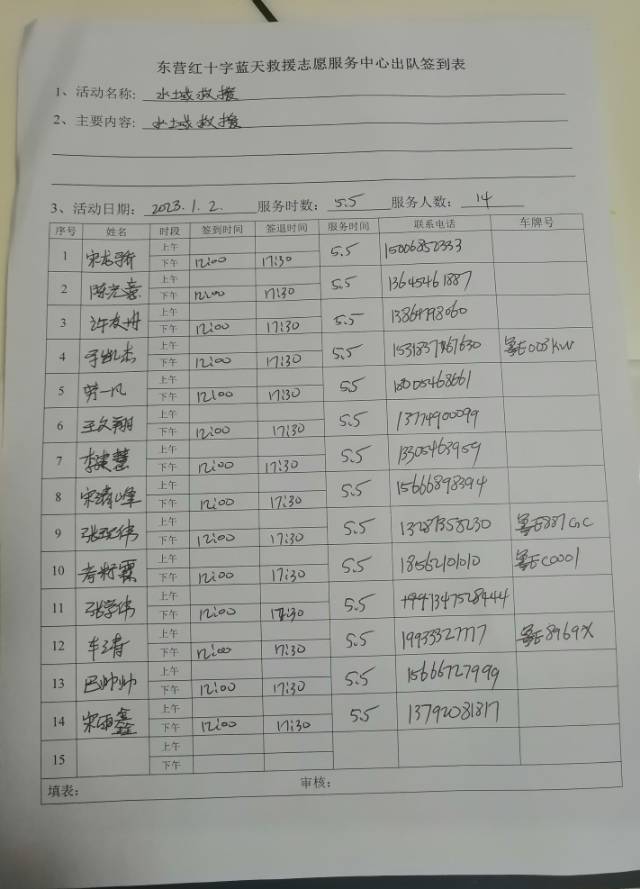 东营红十字蓝天救援志愿服务中心出队签到表
1、活动名称: 水域救援
2、主要内容: 水域救援
3、活动日期: 2023.1.2. 服务时数: 5.5 服务人数: 14
序号 姓名 时段 签到时间 签退时间 服务时间 联系电话 车牌号
上午
1 下午 12:00 17:30 5.5 15006852333
上午
2 下午 12:00 17:30 5.5 13645461887
上午
3 下午 12:00 17:30 5.5
上午
4 下午 12:00 17:30 5.5
上午
5 劳一凡 下午 12:00 17:30 5.5
上午
6 王文翔 下午 12:00 17:30 5.5 13774900099
上午
7 李建慧 下午 12:00 17:30 5.5 13305463959
上午
8 宋靖峰 下午 12:00 17:30 5.5 15666898394
上午
9 下午 12:00 17:30 5.5 13287358230
上午
10 下午 12:00 17:30 5.5 18562101010 鲁EC0001
上午
11 张学伟 下午 12:00 17:30 5.5
上午
12 车靖 下午 12:00 17:30 5.5 19933327777 鲁E8969X
上午
13 巴帅帅 下午 12:00 17:30 5.5 15666727999
上午
14 宋雨鑫 下午 12:00 17:30 5.5 13792081817
上午
15 下午
填表: 审核: